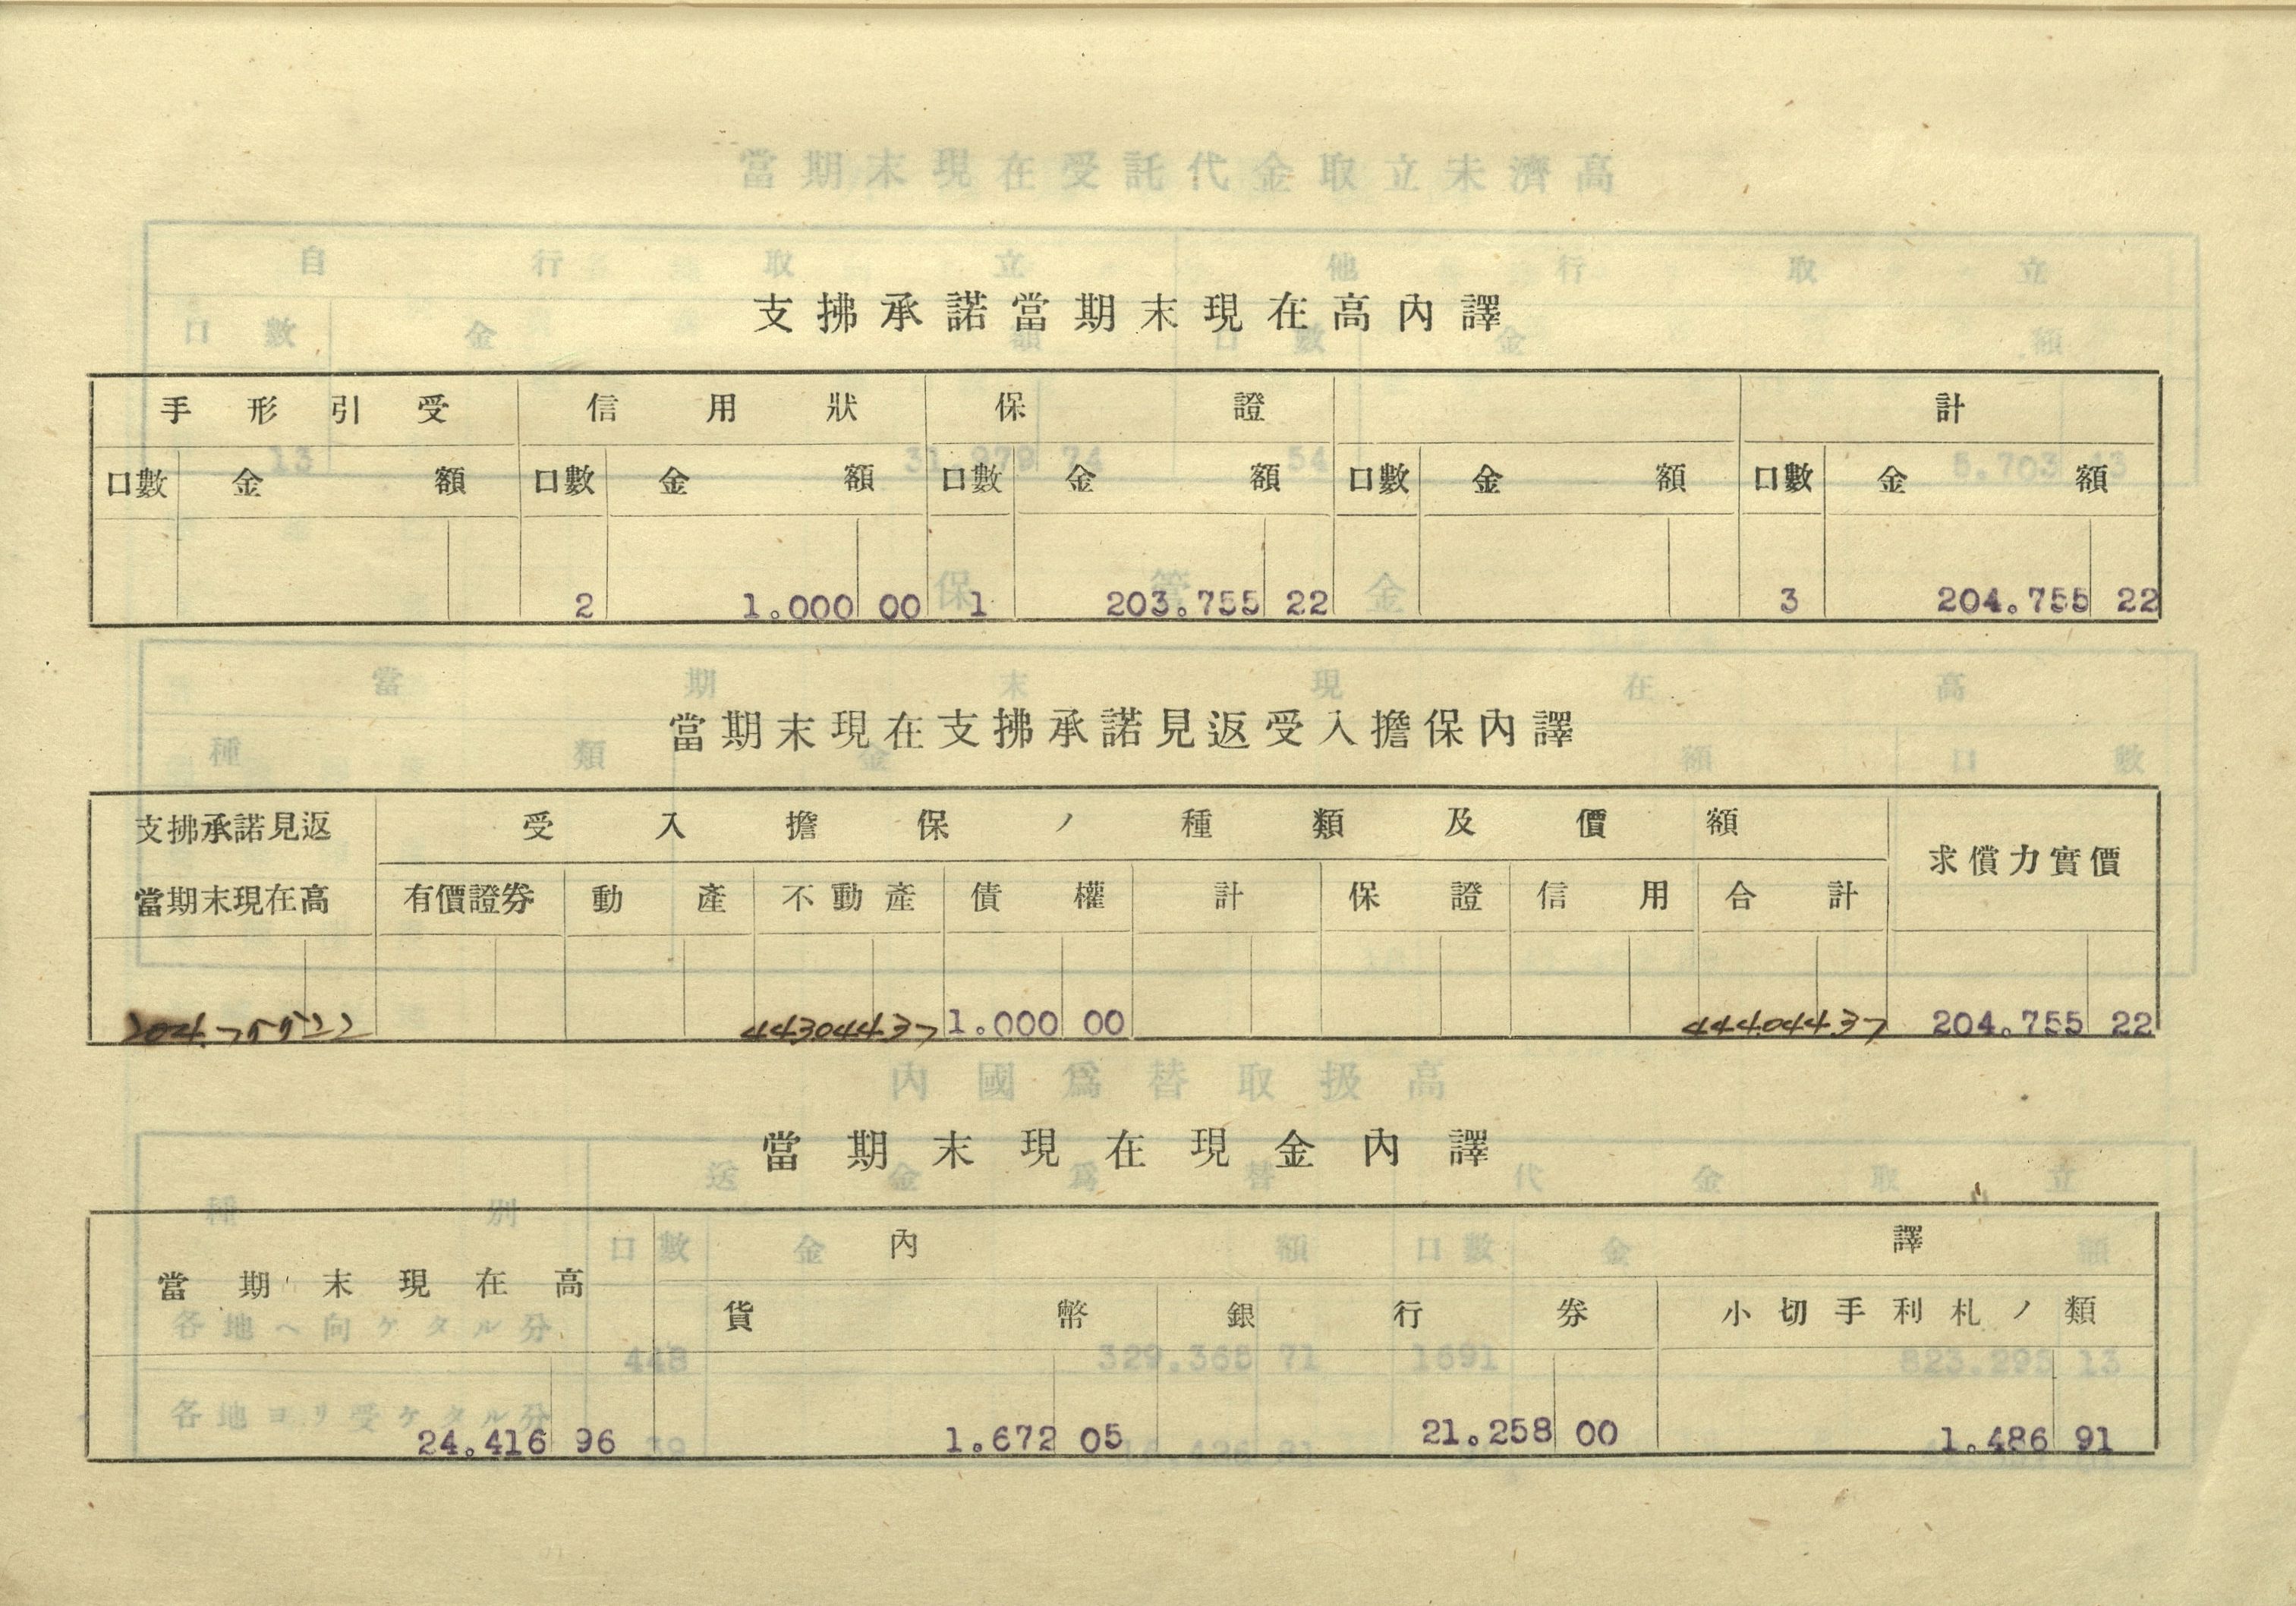 支拂承諾當期末現在高內譯
手形引受 信用狀 保證 計
口數 金額 口數 金額 口數 金額 口數 金額 口數 金額
2 1.000 00 1 203.755 22 3 204.755 22
當期末現在支拂承諾見返受入擔保內譯
支拂承諾見返 受入擔保ノ種類及價額 求償力實價
當期末現在高 有價證券 動產 不動產 債權 計 保證 信用 合計
204.755 22 443044 37 1.000 00 444.044 37 204.755 22
當期末現在現金內譯
當期末現在高 內譯
貨幣 銀行券 小切手利札ノ類
24.416 96 1.672 05 21.258 00 1.486 91